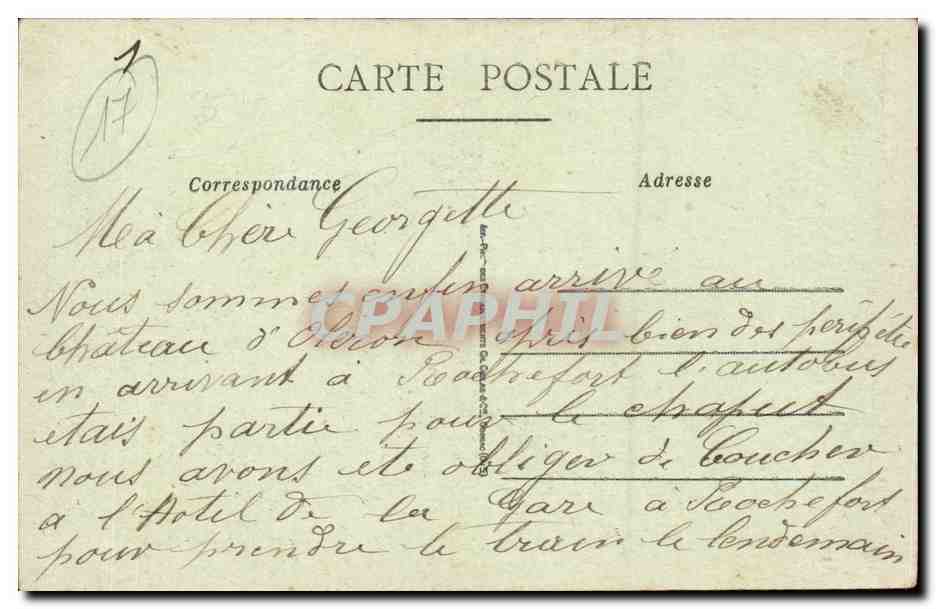 1
17
CARTE POSTALE
Correspondance
Adresse
Ma Chère Georgette
Nous sommes enfin arrivé au
Château d'Oleron après bien des péripétie
en arrivant à Rochefort l'autobus
etais partie pour le chaput
nous avons ete obliger de Coucher
à l'Hotel de la Gare à Rochefort
pour prendre le train le lendemain
CPAPHIL